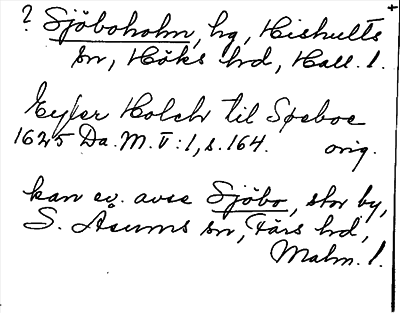 ? Sjöboholm, hg, Hishults
sn, Höks hrd, Hall. l.
Eyler Holck til Søeboe
1625 Da. M. V:1, s. 164. orig.
kan ev. avse Sjöbo, stor by,
S. Åsums sn, Färs hrd,
Malm. l.